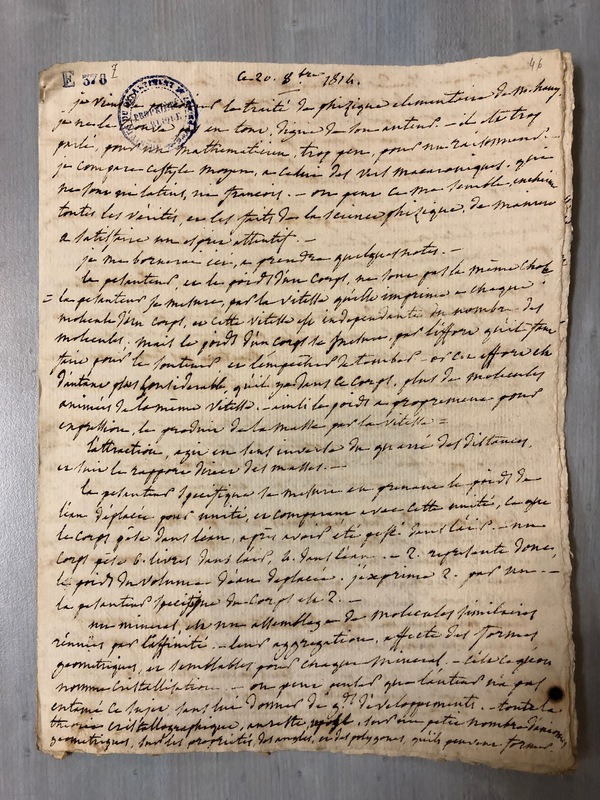 E 378
46
ce 20. 8bre 1814.
je viens de le traité de phizique elementaire de m. hauy.
je ne le trouve en tout, digne de son auteur. — il a trop
parlé, pour un mathématicien, trop peu, pour un raisonneur.
je compare ce style moyen, a celui des vers macaroniques. que
ne sont ni latins, ni francois. — on peut ce me semble,
toutes les vérités, et les faits de la science phizique, de maniere
a satisfaire un esprit attentif. —
je me bornerai ici, a prendre quelques notes. —
la pesanteur, et le poids d'un corps, ne sont pas la même chose
= la pesanteur se mesure, par la vitesse qu'elle imprime a chaque
molecule d'un corps, et cette vitesse est independante du nombre des
molecules. mais le poids d'un corps se mesure, par l'effort qu'il faut
faire pour le soutenir et l'empêcher de tomber — or cet effort est
d'autant plus considerable qu'il y a dans ce corps, plus de molecules
animées de la même vitesse. — ainsi le poids a proprement pour
expression, le produit de la masse par la vitesse =
l'attraction, agit en sens inverse du quarré des distances,
et suit le rapport direct des masses. —
la pesanteur specifique se mesure en prenant le poids de
l'eau deplacée pour unité, et comparant avec cette unité, ce que
le corps pèse dans l'eau, après avoir été pesé dans l'air. — un
corps pèse 6. livres dans l'air, 4. dans l'eau. — 2. represente donc,
le poids du volume d'eau deplacée. j'exprime 2. par un. —
la pesanteur specifique du corps est 2. —
un mineral, est un assemblage de molecules similaires
réunies par l'affinité. — leur aggregation, affecte des formes
geometriques, et semblables pour chaque mineral. — c'est ce qu'on
nomme cristallisation. — on peut penser que l'auteur n'a pas
entamé ce sujet sans lui donner de gds développements. — toute la
théorie cristallographique, au reste, sur un petit nombre d'axiomes
geometriques, sur les proprietés, des angles, et des polygones, qu'ils peuvent former